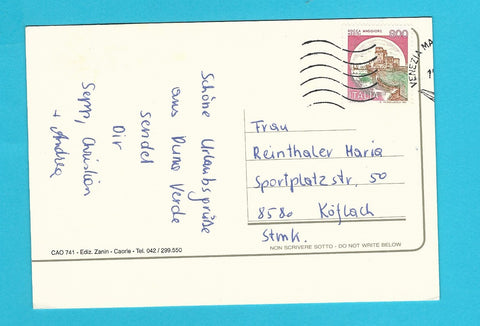 Schöne Urlaubsgrüße
aus Duna Verde
sendet
Dir
Sepp, Christian
+ Andrea
ROCCA MAGGIORE
800
ITALIA
VENEZIA MA
Frau
Reinthaler Maria
Sportplatzstr. 50
8580 Köflach
Stmk.
CAO 741 - Ediz. Zanin - Caorle - Tel. 042 / 299.550
NON SCRIVERE SOTTO - DO NOT WRITE BELOW